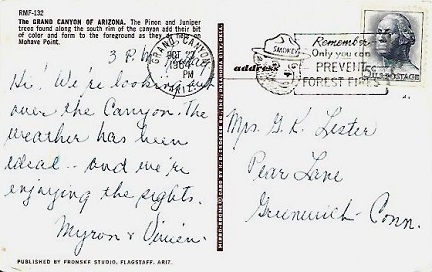 RMF-132
The GRAND CANYON OF ARIZONA. The Pinon and Juniper
trees found along the south rim of the canyon add their bit
of color and form to the foreground as they do here at
Mohave Point.
3 P.M.
GRAND CANYON
OCT 22
1964
PM
ARIZ.
Hi! We're looking out
over the Canyon. The
weather has been
ideal - and we're
enjoying the sights.
Myron & Vivien.
PUBLISHED BY FRONSKE STUDIO, FLAGSTAFF, ARIZ.
address
SMOKEY
Remember
Only you can
PREVENT
FOREST FIRES
U.S. POSTAGE
Mrs. G. K. Lester
Pear Lane
Greenwich - Conn.